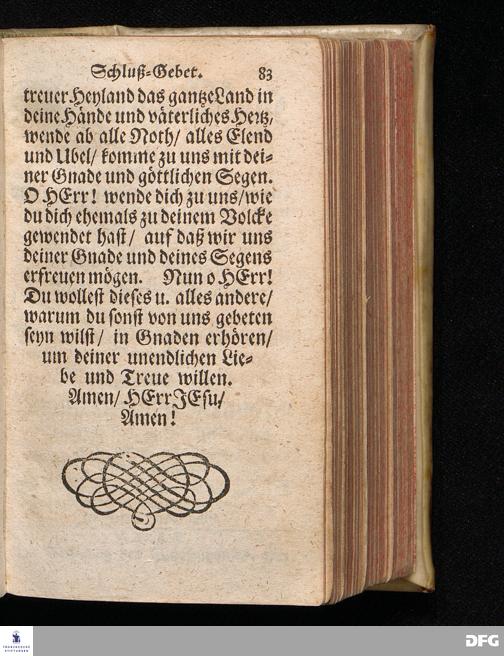 Schluß-Gebet. 83
treuer Heyland das gantze Land in
deine Hände und väterliches Hertz,
wende ab alle Noth/ alles Elend
und Ubel/ komme zu uns mit dei-
ner Gnade und göttlichen Segen.
O HErr! wende dich zu uns/wie
du dich ehemals zu deinem Volcke
gewendet hast/ auf daß wir uns
deiner Gnade und deines Segens
erfreuen mögen. Nun o HErr!
Du wollest dieses u. alles andere/
warum du sonst von uns gebeten
seyn wilst/ in Gnaden erhören/
um deiner unendlichen Lie-
be und Treue willen.
Amen/ HErr JEsu/
Amen!
FRANCKESCHE
STIFTUNGEN
DFG